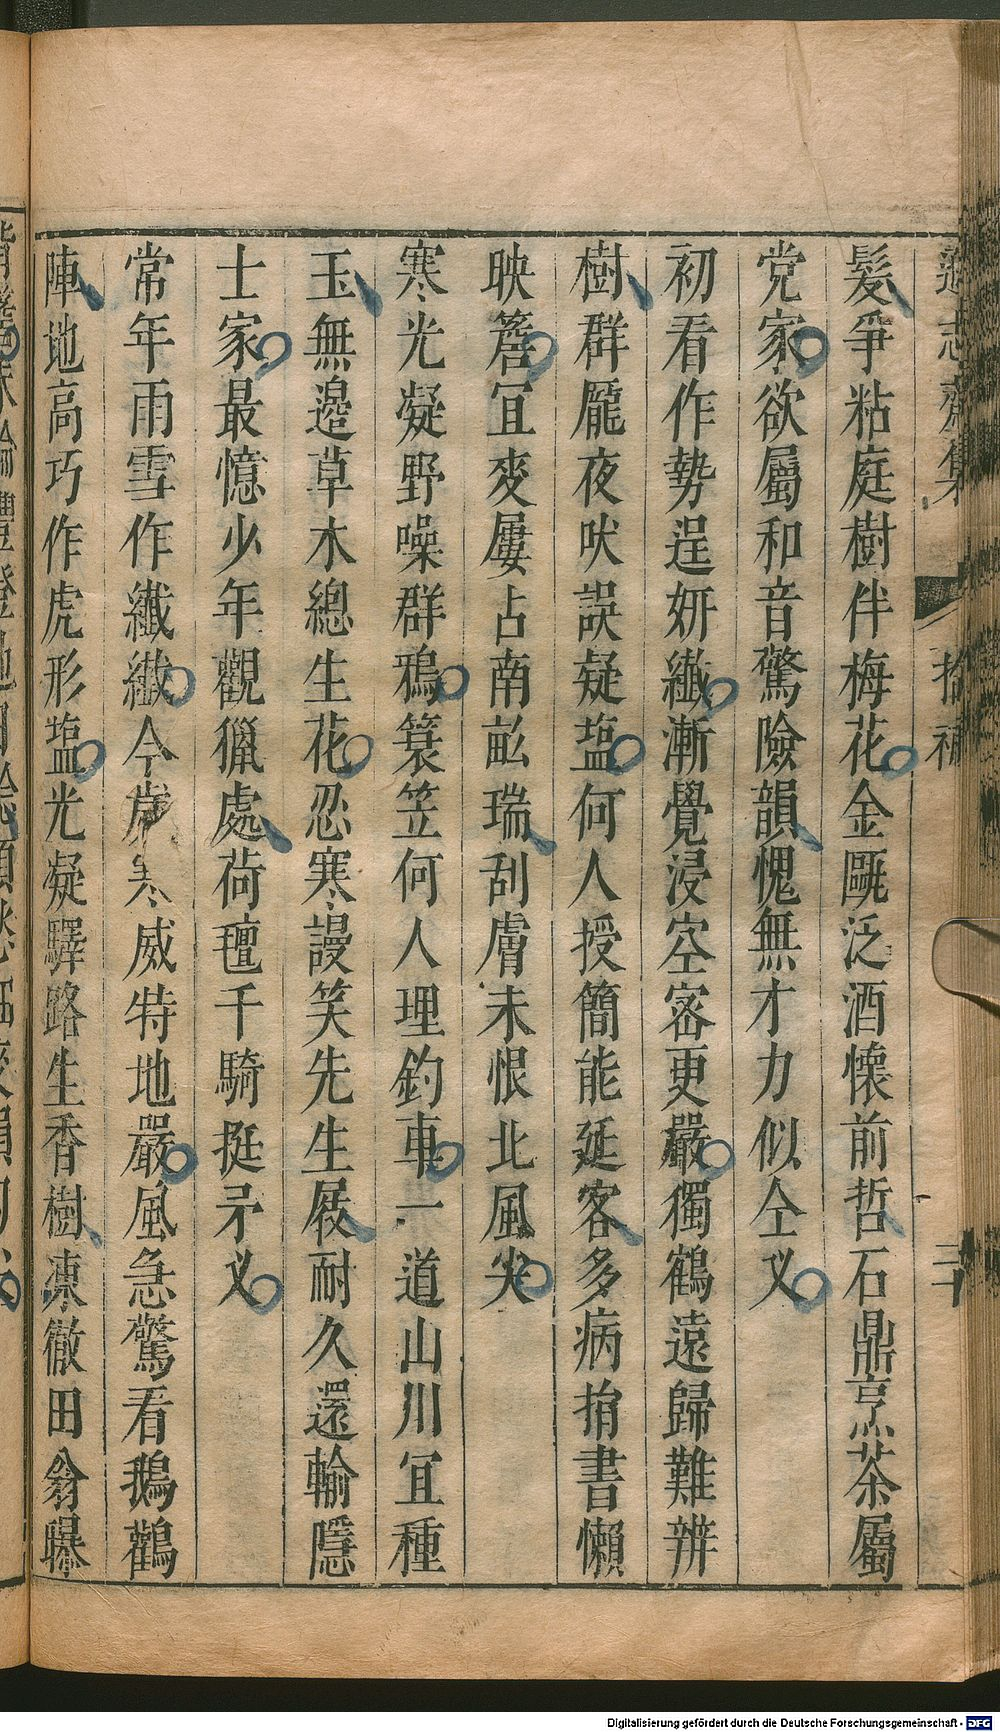 遜志齋集 拾補 三十
髮爭粘庭樹伴梅花金甌泛酒懷前哲石鼎烹茶屬
党家欲屬和音驚險韻愧無才力似仝义
初看作勢逞妍纖漸覺浸空密更嚴獨鶴遠歸難辨
樹群厖夜吠誤疑塩何人授簡能延客多病捐書懶
映簷宜麥屢占南畝瑞刮膚未恨北風尖
寒光凝野噪群鴉簑笠何人理釣車一道山川宜種
玉無邉草木總生花忍寒謾笑先生屐耐久還輸隱
士家最憶少年觀獵處荷氊千騎挺矛义
常年雨雪作纖纖今歲寒威特地嚴風急驚看鵝鸛
陣地高巧作虎形塩光凝驛路生香樹凍徹田翁曝
Digitalisierung gefördert durch die Deutsche Forschungsgemeinschaft - DFG